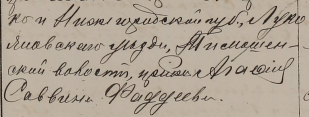 ко и Нижегородской губ., Луко
яновскаго уезда, Тимошен-
ской волости,приход Агафия
Саввина Фаддеева.